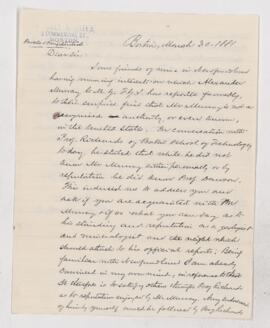 Boston, March 30 - 1881
Private & Confidential
Dear Sir
Some friends of mine in Newfoundland
having mining interests on which Alexander
Murray C.M.G. F.G.S. has reported favorably
to their surprise find that Mr Murray is not a
recognised authority, or even known,
in the United States. In conversation with
Prof. Richards of Boston School of Technology
today, he stated that while he did not
know Mr Murray either personally or by
reputation he did know Prof Dawson.
This induces me to address you and
ask if you are acquainted with Mr
Murray or what you can say as to
his standing and reputation as a geologist
and mineralogist and the weight which
should attach to his official reports. Being
familiar with Newfoundland I am already
convinced in my own mind,
is to satisfy others through Prof Richards
as to reputation enjoyed by Mr Murray. Any
kindly must be followed by